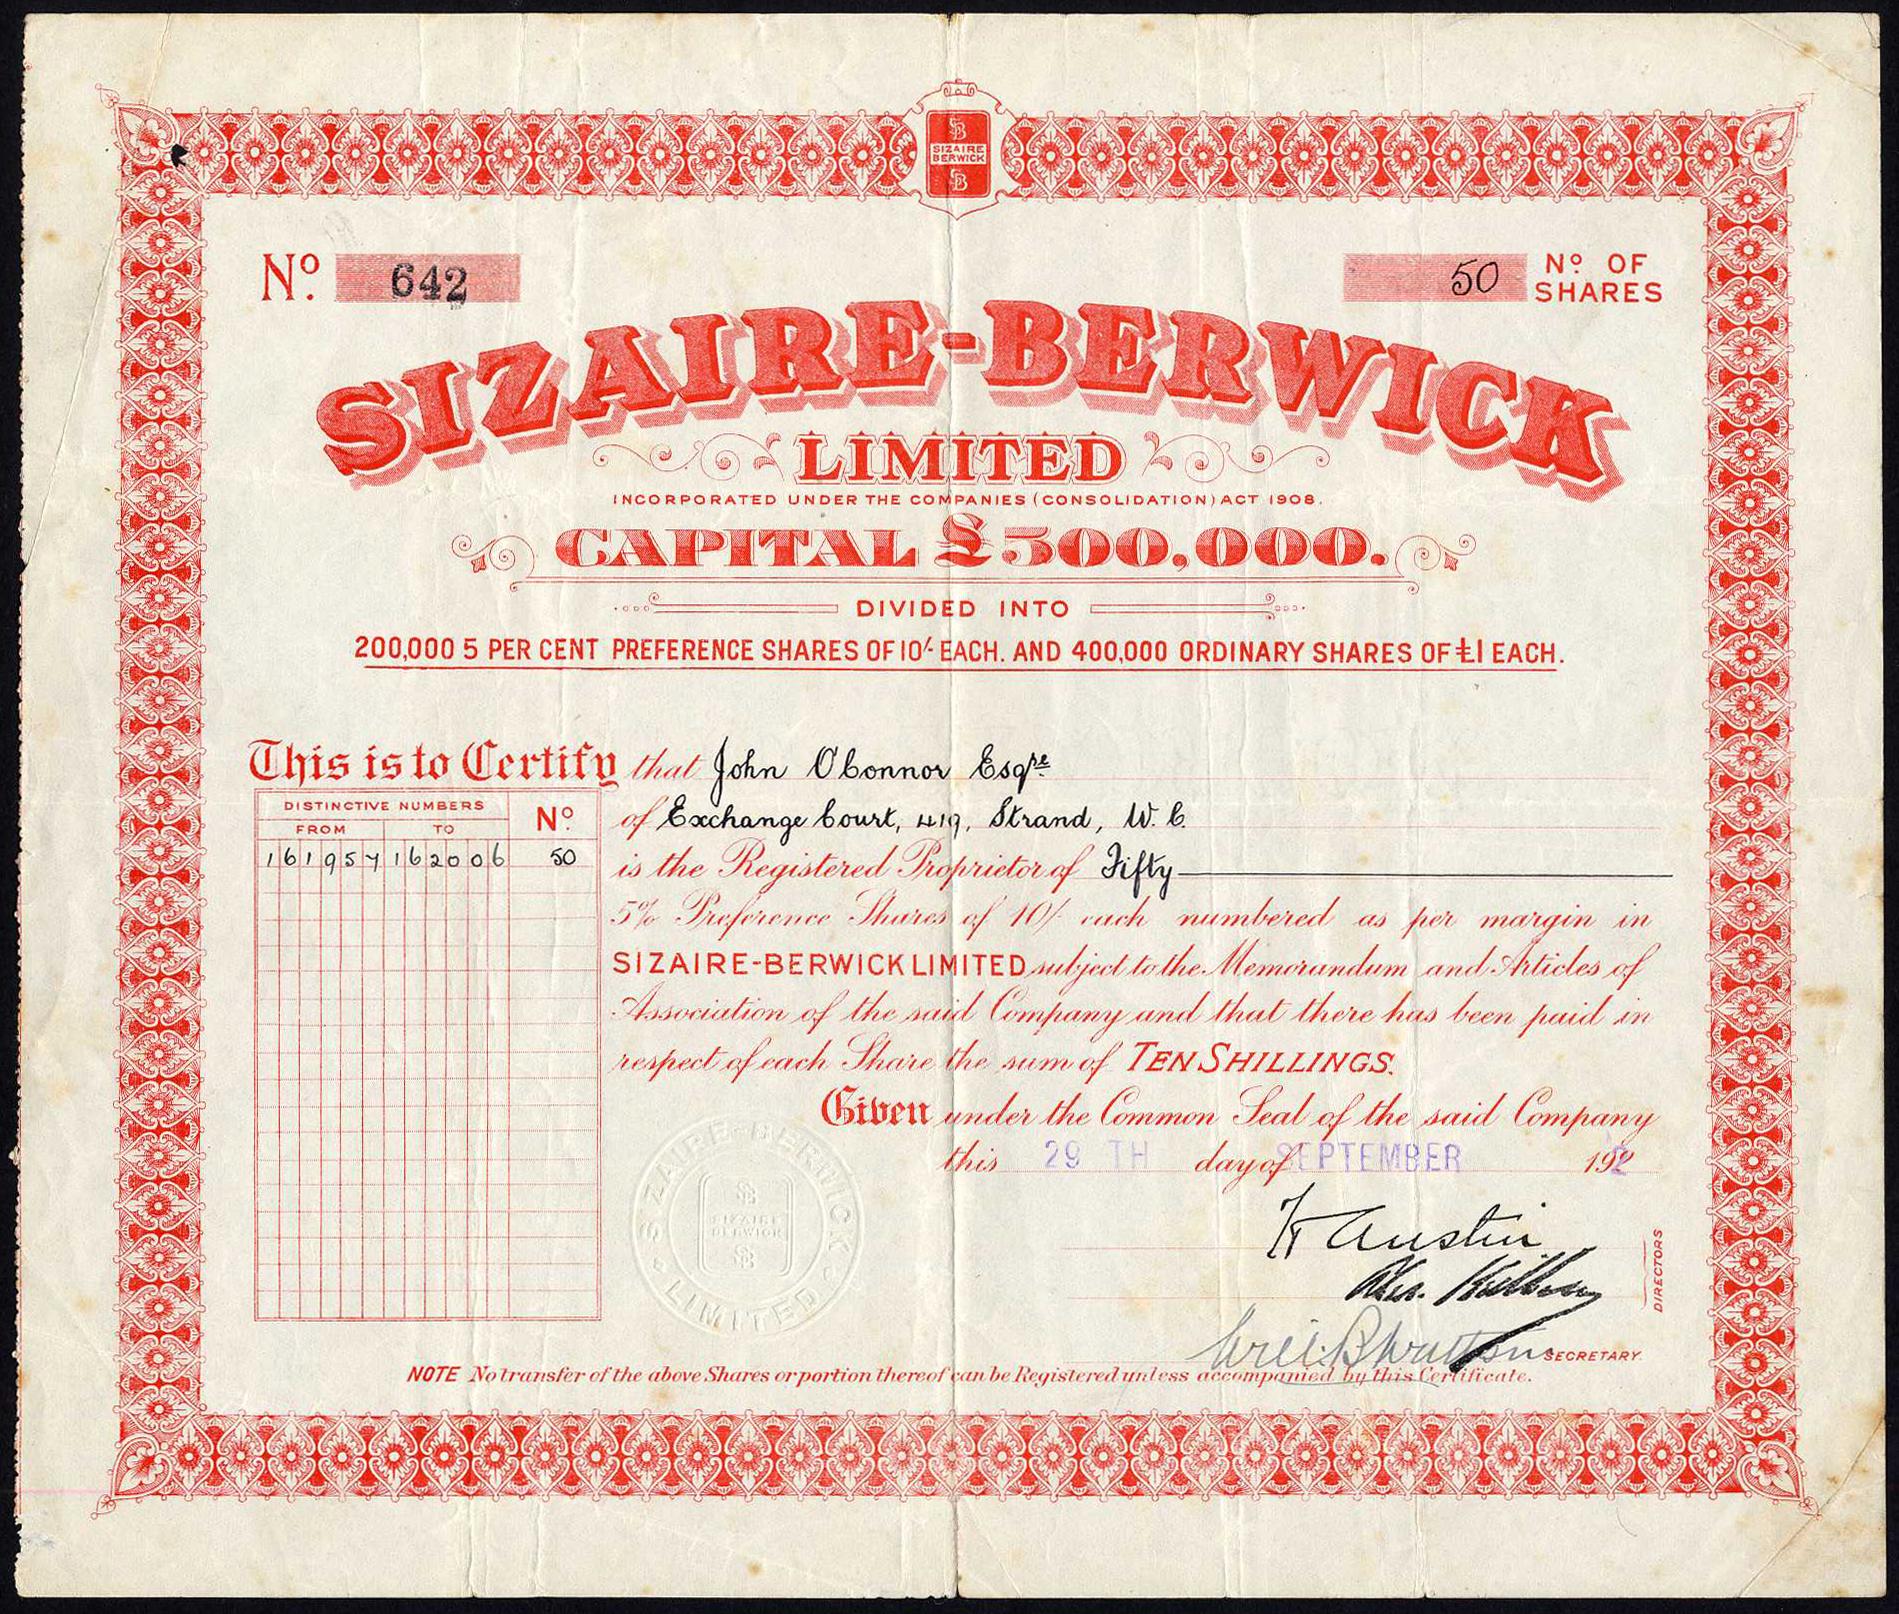 SB
SIZAIRE
BERWICK
SB
No. 642
50 No. OF
SHARES
SIZAIRE-BERWICK
LIMITED
INCORPORATED UNDER THE COMPANIES (CONSOLIDATION) ACT 1908.
CAPITAL £500,000.
DIVIDED INTO
200,000 5 PER CENT PREFERENCE SHARES OF 10/- EACH. AND 400,000 ORDINARY SHARES OF £1 EACH.
This is to Certify that John O'Connor Esqre
of Exchange Court, 419, Strand, W.C.
is the Registered Proprietor of Fifty
5% Preference Shares of 10/- each numbered as per margin in
SIZAIRE-BERWICK LIMITED subject to the Memorandum and Articles of
Association of the said Company and that there has been paid in
respect of each Share the sum of TEN SHILLINGS.
DISTINCTIVE NUMBERS No.
FROM TO
161957 162006 50
Given under the Common Seal of the said Company
this 29TH day of SEPTEMBER 192
SIZAIRE-BERWICK
LIMITED
SB
SIZAIRE
BERWICK
SB
Austin
DIRECTORS
SECRETARY.
NOTE No transfer of the above Shares or portion thereof can be Registered unless accompanied by this Certificate.